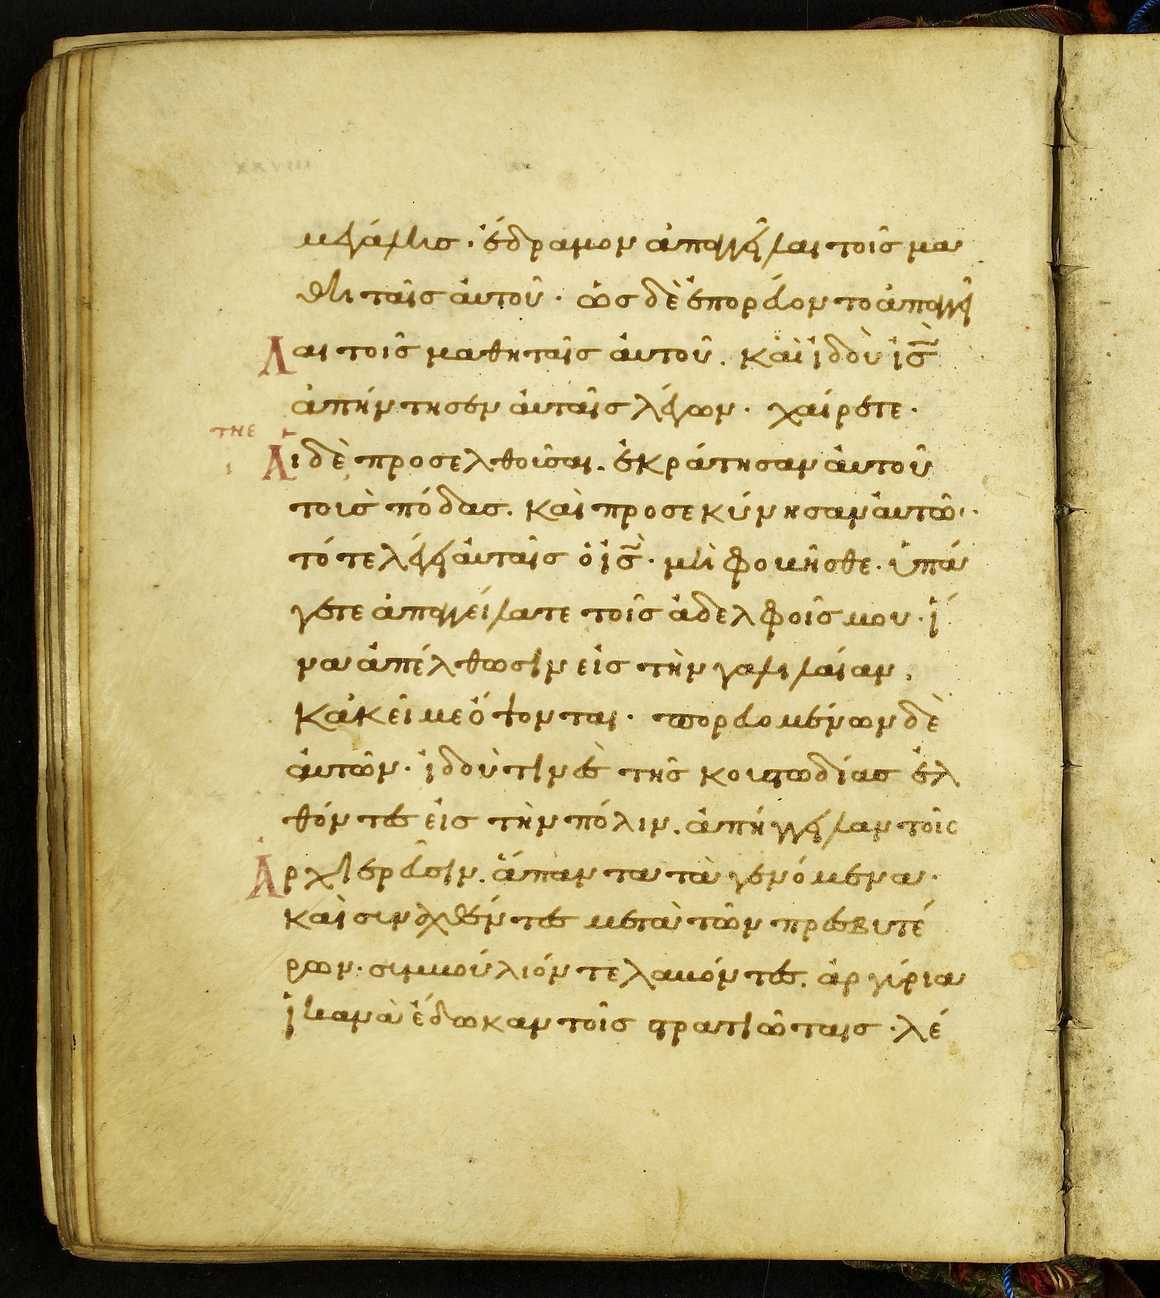 XXVIII
μεγάλης· ἔδραμον ἀπαγγεῖλαι τοῖς μα
θηταῖς αὐτοῦ· ὡς δὲ ἐπορεύοντο ἀπαγγεῖ
λαι τοῖς μαθηταῖς αὐτοῦ. καὶ ἰδοὺ ις
ἀπήντησεν αὐταῖς λέγων· χαίρετε·
τνε
ι
Αἱ δὲ προσελθοῦσαι. ἐκράτησαν αὐτοῦ
τοὺς πόδας. καὶ προσεκύνησαν αὐτῶ··
τότε λέγει αὐταῖς ὁ ις· μὴ φοβῆσθε· ὑπά
γετε ἀπαγγείλατε τοῖς ἀδελφοῖς μου· ἵ
να ἀπέλθωσιν εἰς τὴν γαλιλαίαν,
κἀκεῖ με ὄψονται· πορευομένων δὲ
αὐτῶν· ἰδού τινὲς τῆς κουστωδίας ἐλ
θόντες εἰς τὴν πόλιν. ἀπήγγειλαν τοῖς
Ἀρχιερεῦσιν. ἅπαντα τὰ γενόμενα·
καὶ συναχθέντες μετὰ τῶν πρεσβυτέ
ρων· συμβούλιόν τε λαβόντες. ἀργύρια
ἱκανὰ ἔδωκαν τοῖς στρατιώταις· λέ